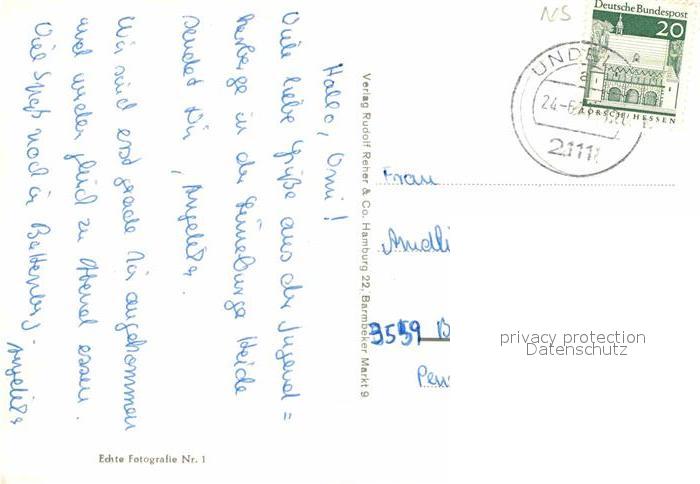 Hallo, Omi!
Viele liebe Grüße aus der Jugend=
herberge in der Lüneburger Heide
sendet Dir, Angelika.
Wir sind erst gerade hier angekommen
und werden gleich zu Abend essen.
Viel Spaß noch in Battenberg.
Angelika
Echte Fotografie Nr. 1
Verlag Rudolf Reher & Co. Hamburg 22, Barmbeker Markt 9
NS
Deutsche Bundespost
20
LORSCH/HESSEN
UND
24-6
2111
Frau
3559 B
privacy protection
Datenschutz